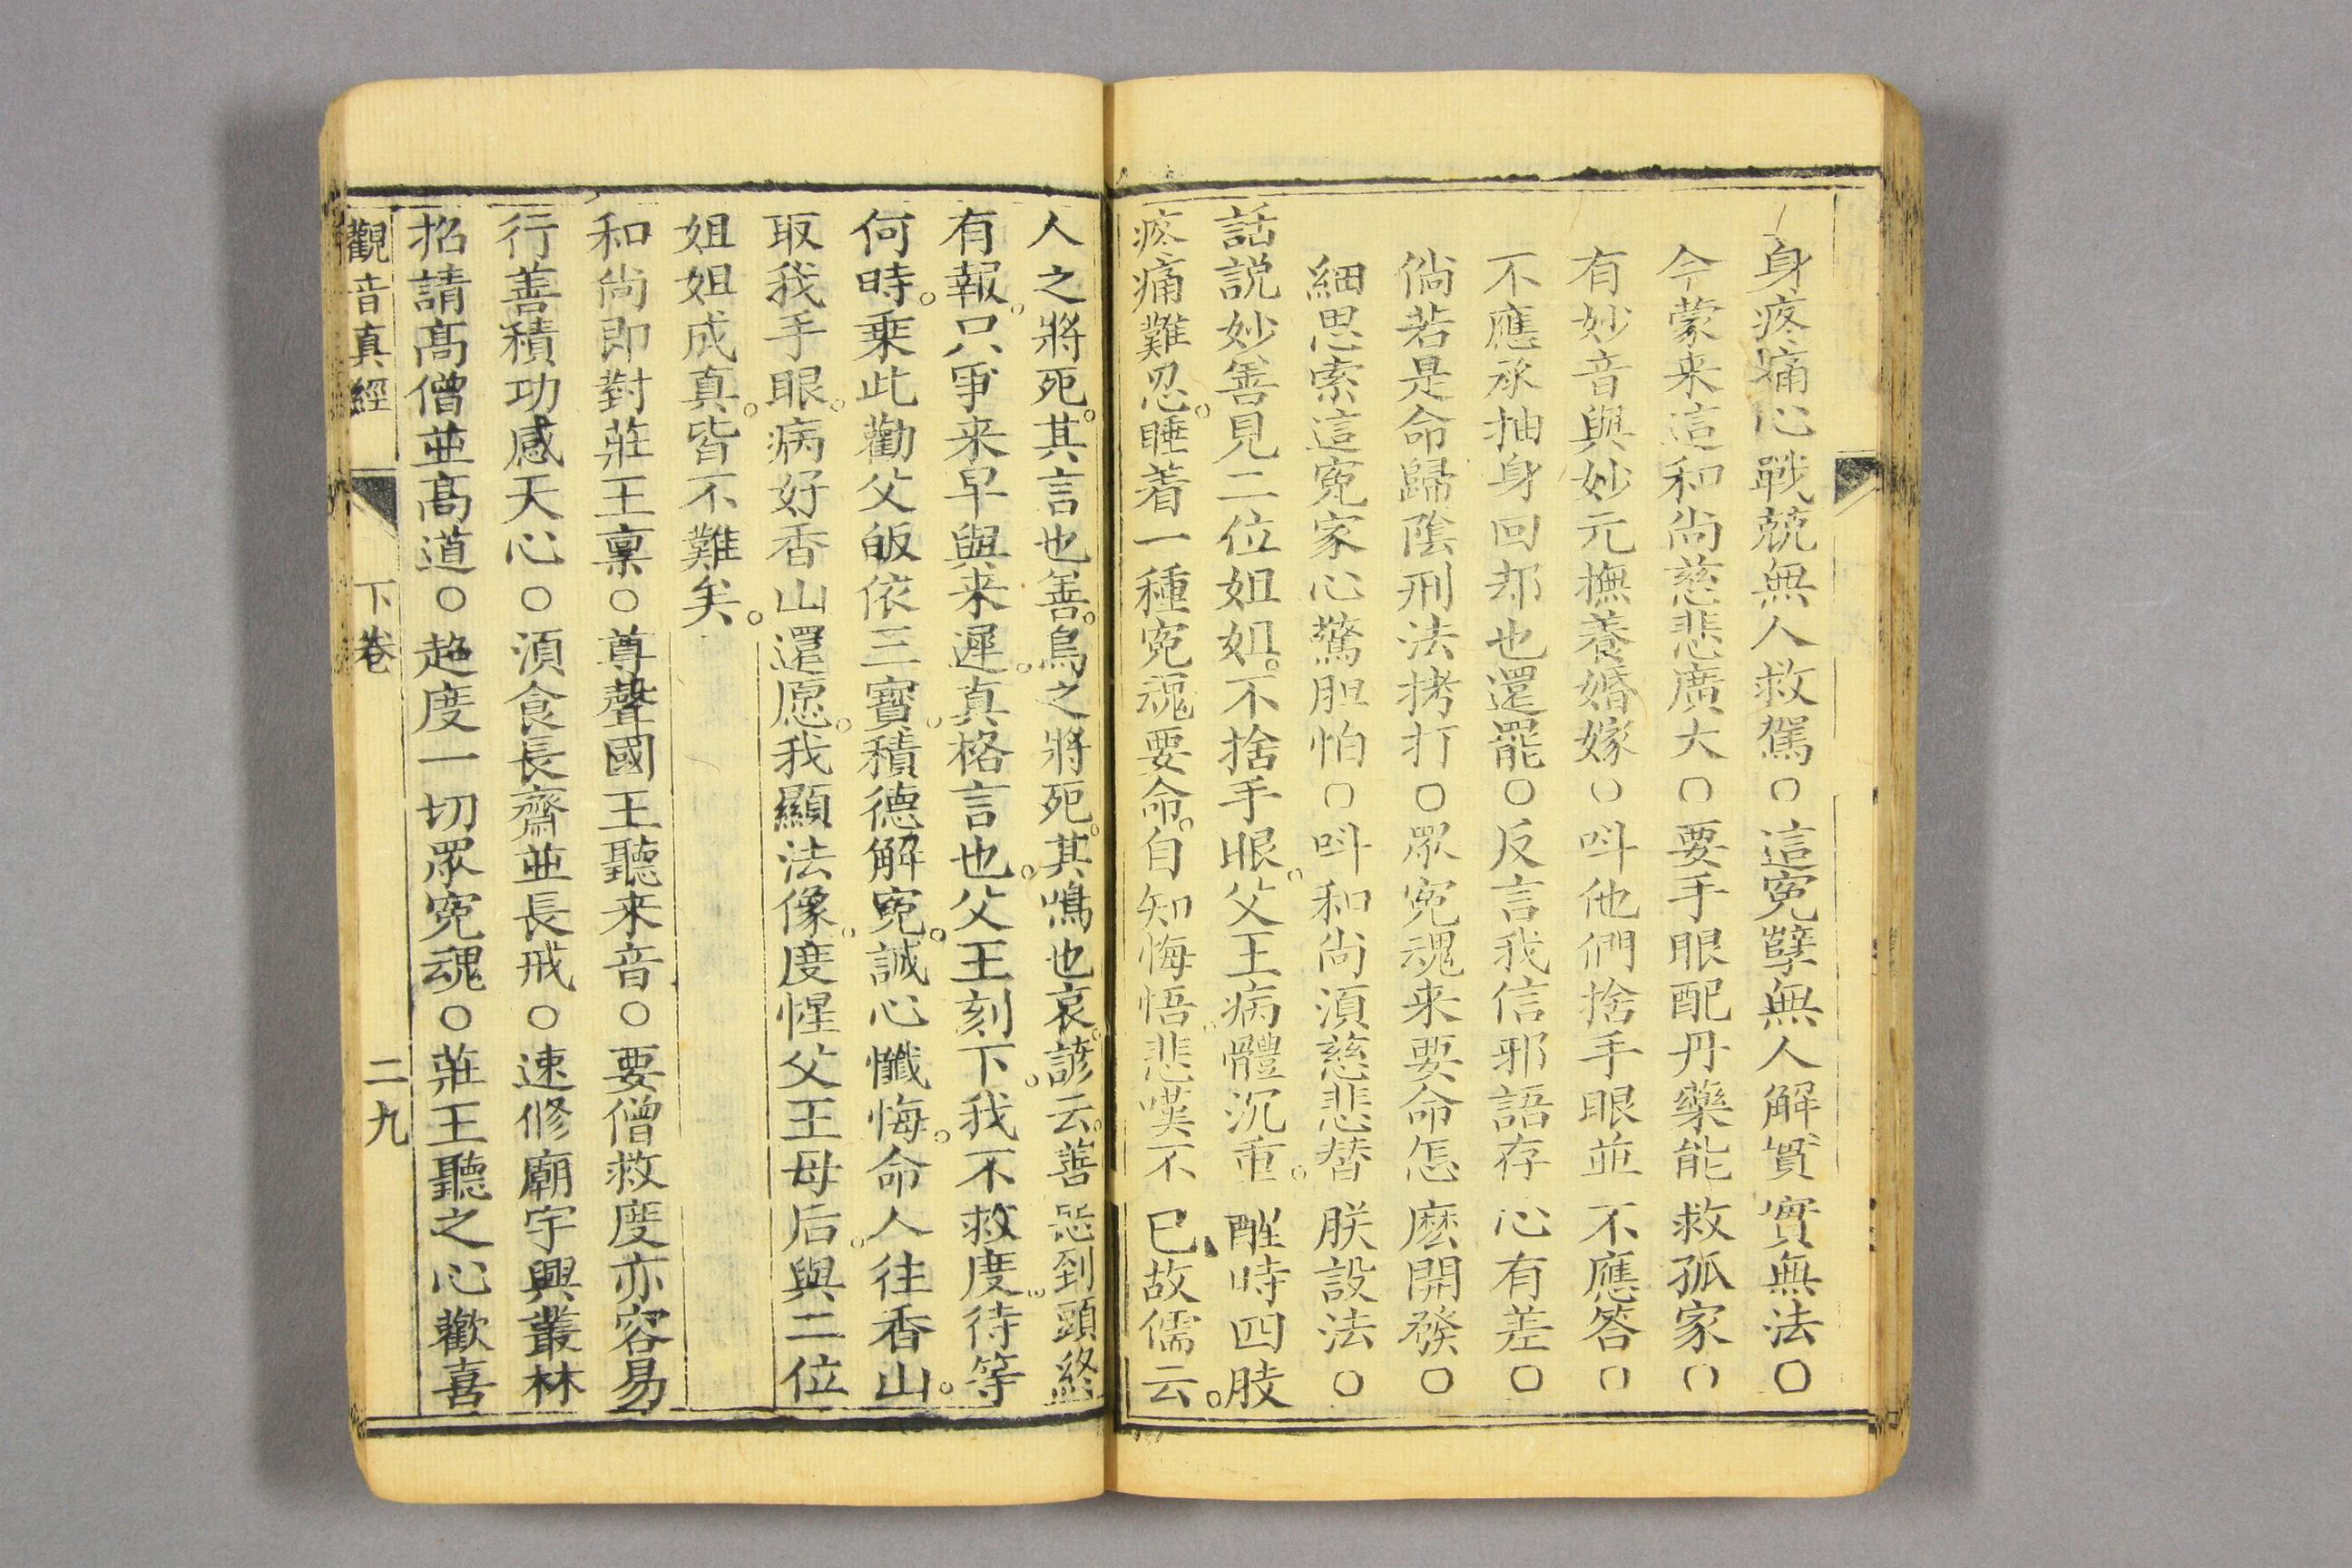 身疼痛心戰兢無人救駕○這寃孽無人解實實無法○
今蒙来這和尚慈悲廣大○要手眼配丹藥能救孤家○
有妙音與妙元撫養婚嫁○呌他們捨手眼並不應答○
不應承抽身回却也還罷○反言我信邪語存心有差○
倘若是命歸陰刑法拷打○眾寃魂来要命怎麽開發○
細思索這寃家心驚胆怕○呌和尚須慈悲替朕設法○
話説妙善見二位姐姐。不捨手眼。父王病體沉重。醒時四肢
疼痛難忍。睡着一種寃魂要命。自知悔悟悲嘆不已故儒云。
人之將死。其言也善。鳥之將死。其鳴也哀。諺云。善惡到頭終
有報。只爭来早與来遲。真格言也。父王刻下。我不救度。待等
何時。乗此勸父皈依三寶。積德解寃。誠心懺悔。命人往香山。
取我手眼。病好香山還愿。我顯法像。度惺父王母后。與二位
姐姐成真。皆不難矣。
和尚即對莊王稟○尊聲國王聽来音○要僧救度亦容易
行善積功感天心○須食長齋並長戒○速修廟宇興叢林
招請髙僧並髙道○超度一切眾寃魂○莊王聽之心歡喜
觀音真經 下卷 二九